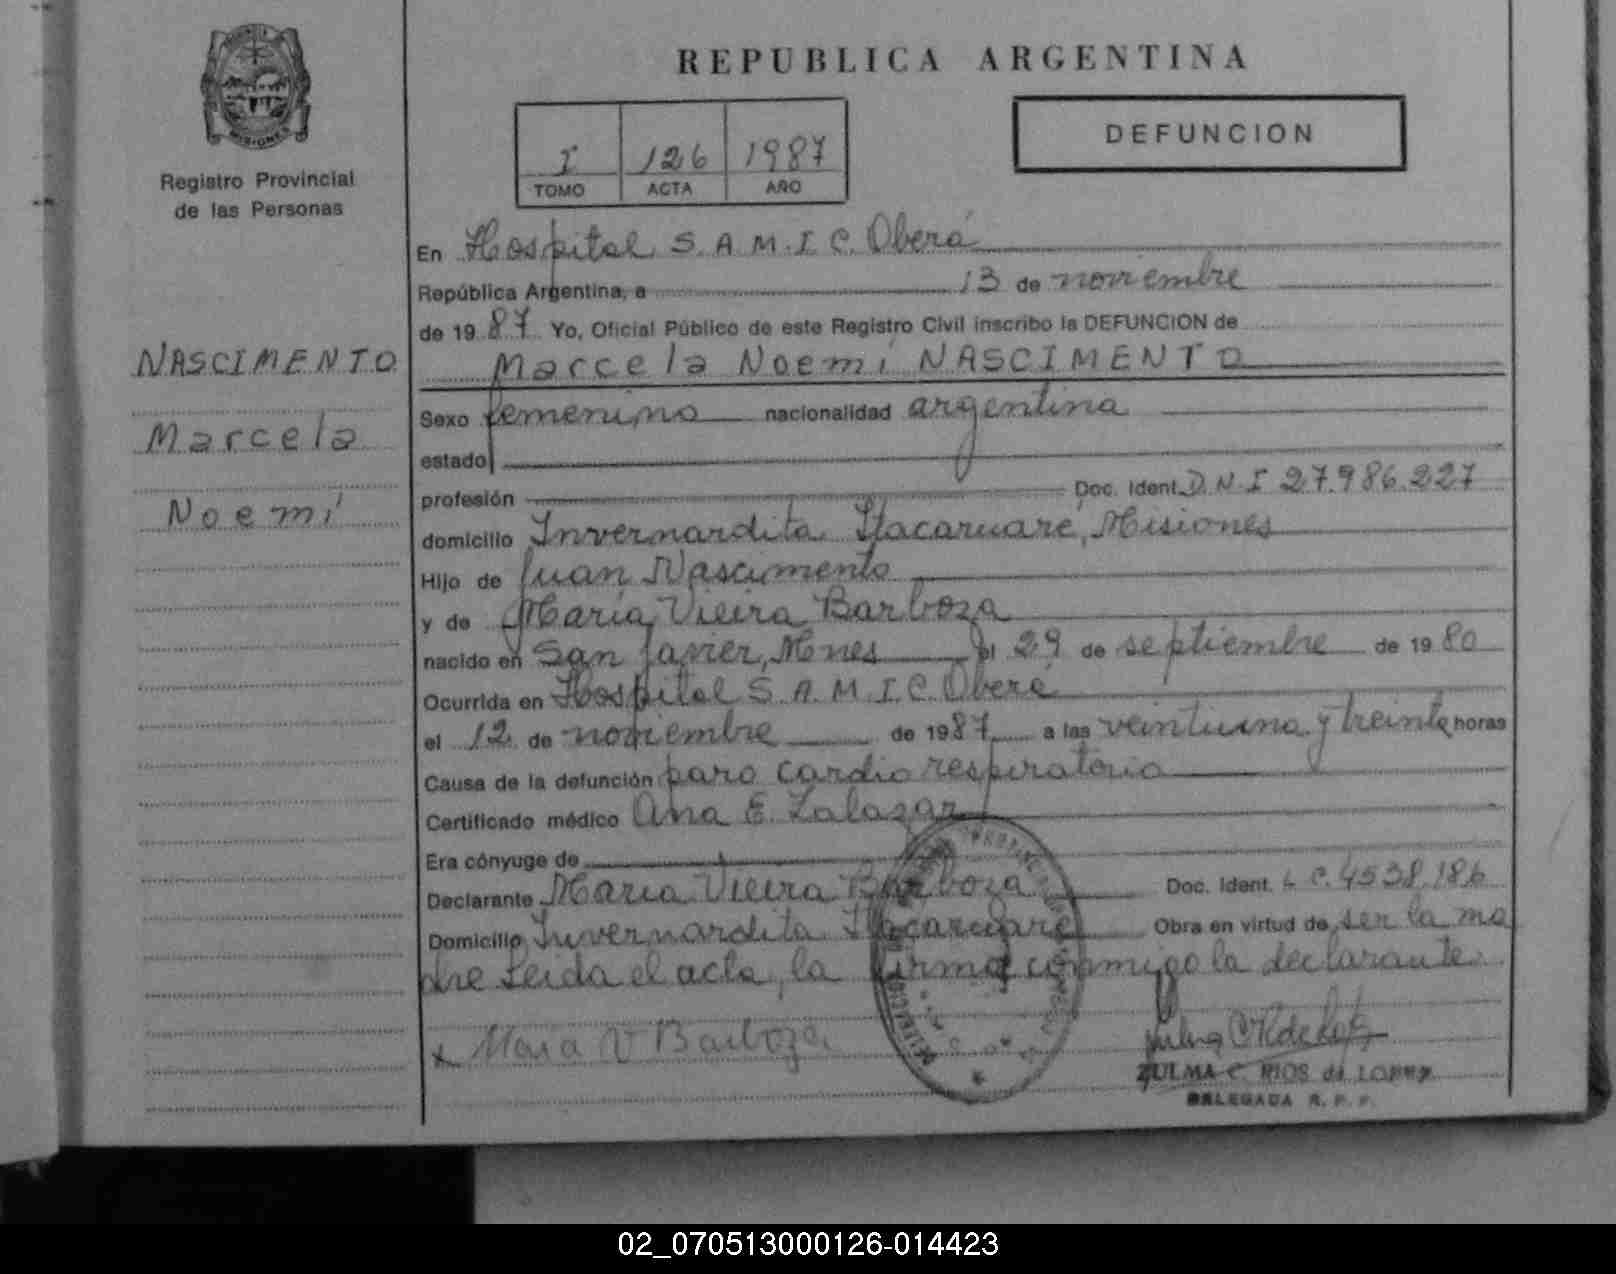 MISIONES
Registro Provincial
de las Personas
NASCIMENTO
Marcela
Noemí
REPUBLICA ARGENTINA
I 126 1987
TOMO ACTA AÑO
DEFUNCION
En Hospital S.A.M.I.C. Oberá
República Argentina, a 13 de noviembre
de 19 87 Yo, Oficial Público de este Registro Civil inscribo la DEFUNCION de
Marcela Noemí NASCIMENTO
Sexo femenino nacionalidad argentina
estado
profesión Doc. Ident. D.N.I 27.986.227
domicilio Invernardita Itacaruaré, Misiones
Hijo de Juan Nascimento
y de María Vieira Barboza
nacido en San Javier, Mnes el 29 de septiembre de 19 80
Ocurrida en Hospital S.A.M.I.C. Oberá
el 12 de noviembre de 19 87 a las veintiuna y treinta horas
Causa de la defunción paro cardio respiratorio
Certificado médico Ana E. Zalazar
Era cónyuge de
Declarante María Vieira Barboza Doc. Ident. L C. 4538.186
Domicilio Invernardita Itacaruaré Obra en virtud de ser la ma
dre Leida el acta, la firma conmigo la declarante.
x Maria V Barboza
ZULMA C. RIOS de LOPEZ
DELEGADA R. P. P.
02_070513000126-014423